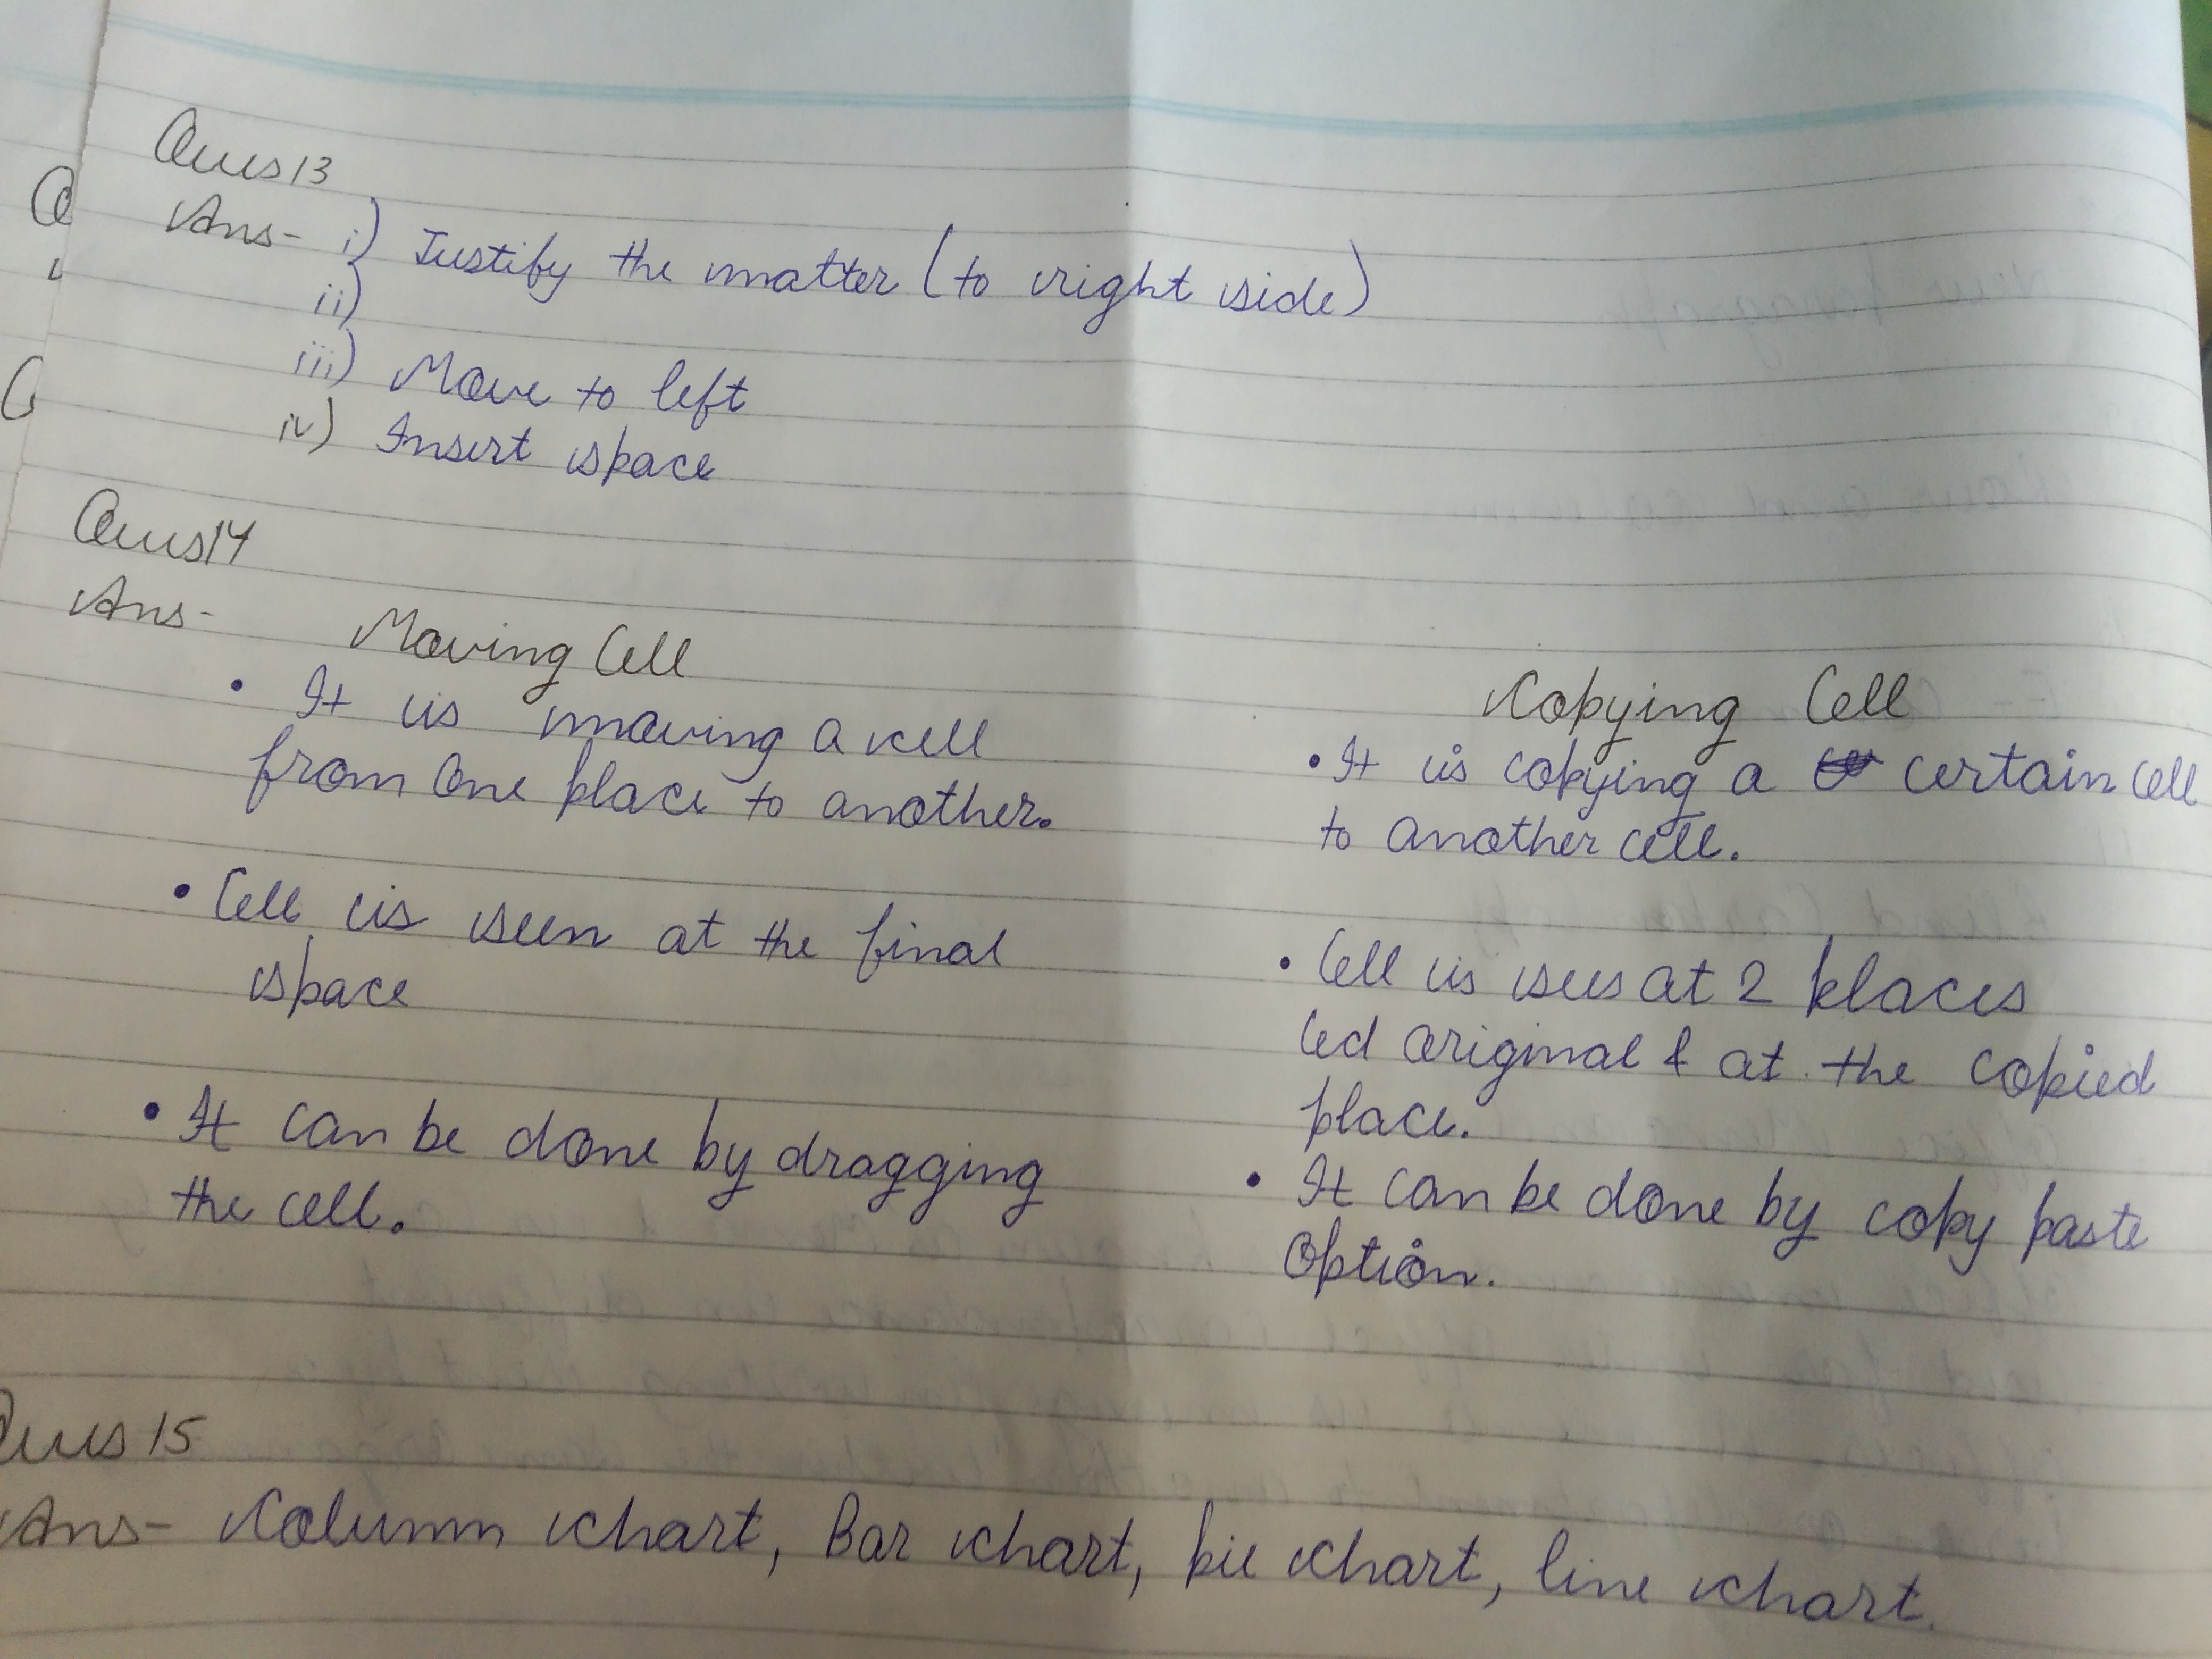 Ques 13
Ans- i) Justify the matter (to right side)
ii)
iii) Move to left
iv) Insert space
Ques 14
Ans-
Moving Cell
• It is moving a cell
from one place to another.
• Cell is seen at the final
space
• It can be done by dragging
the cell.
Copying Cell
• It is copying a certain cell
to another cell.
• Cell is sees at 2 places
original & at the copied
place.
• It can be done by copy paste
option.
Ques 15
Ans- Column chart, Bar chart, pie chart, line chart.